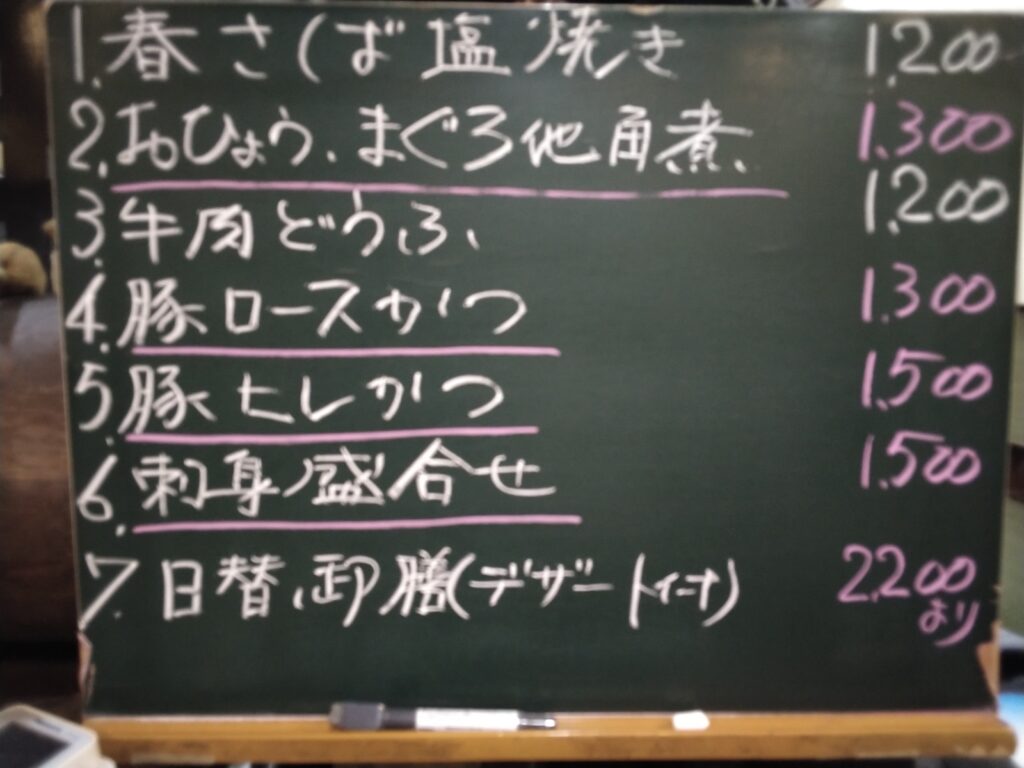 1. 春さば塩焼き 1,200
2. おひょう、まぐろ他角煮、 1,300
3. 牛肉どうふ、 1,200
4. 豚ロースかつ 1,300
5. 豚ヒレかつ 1,500
6. 刺身盛合せ 1,500
7. 日替、御膳(デザート付) 2,200
より